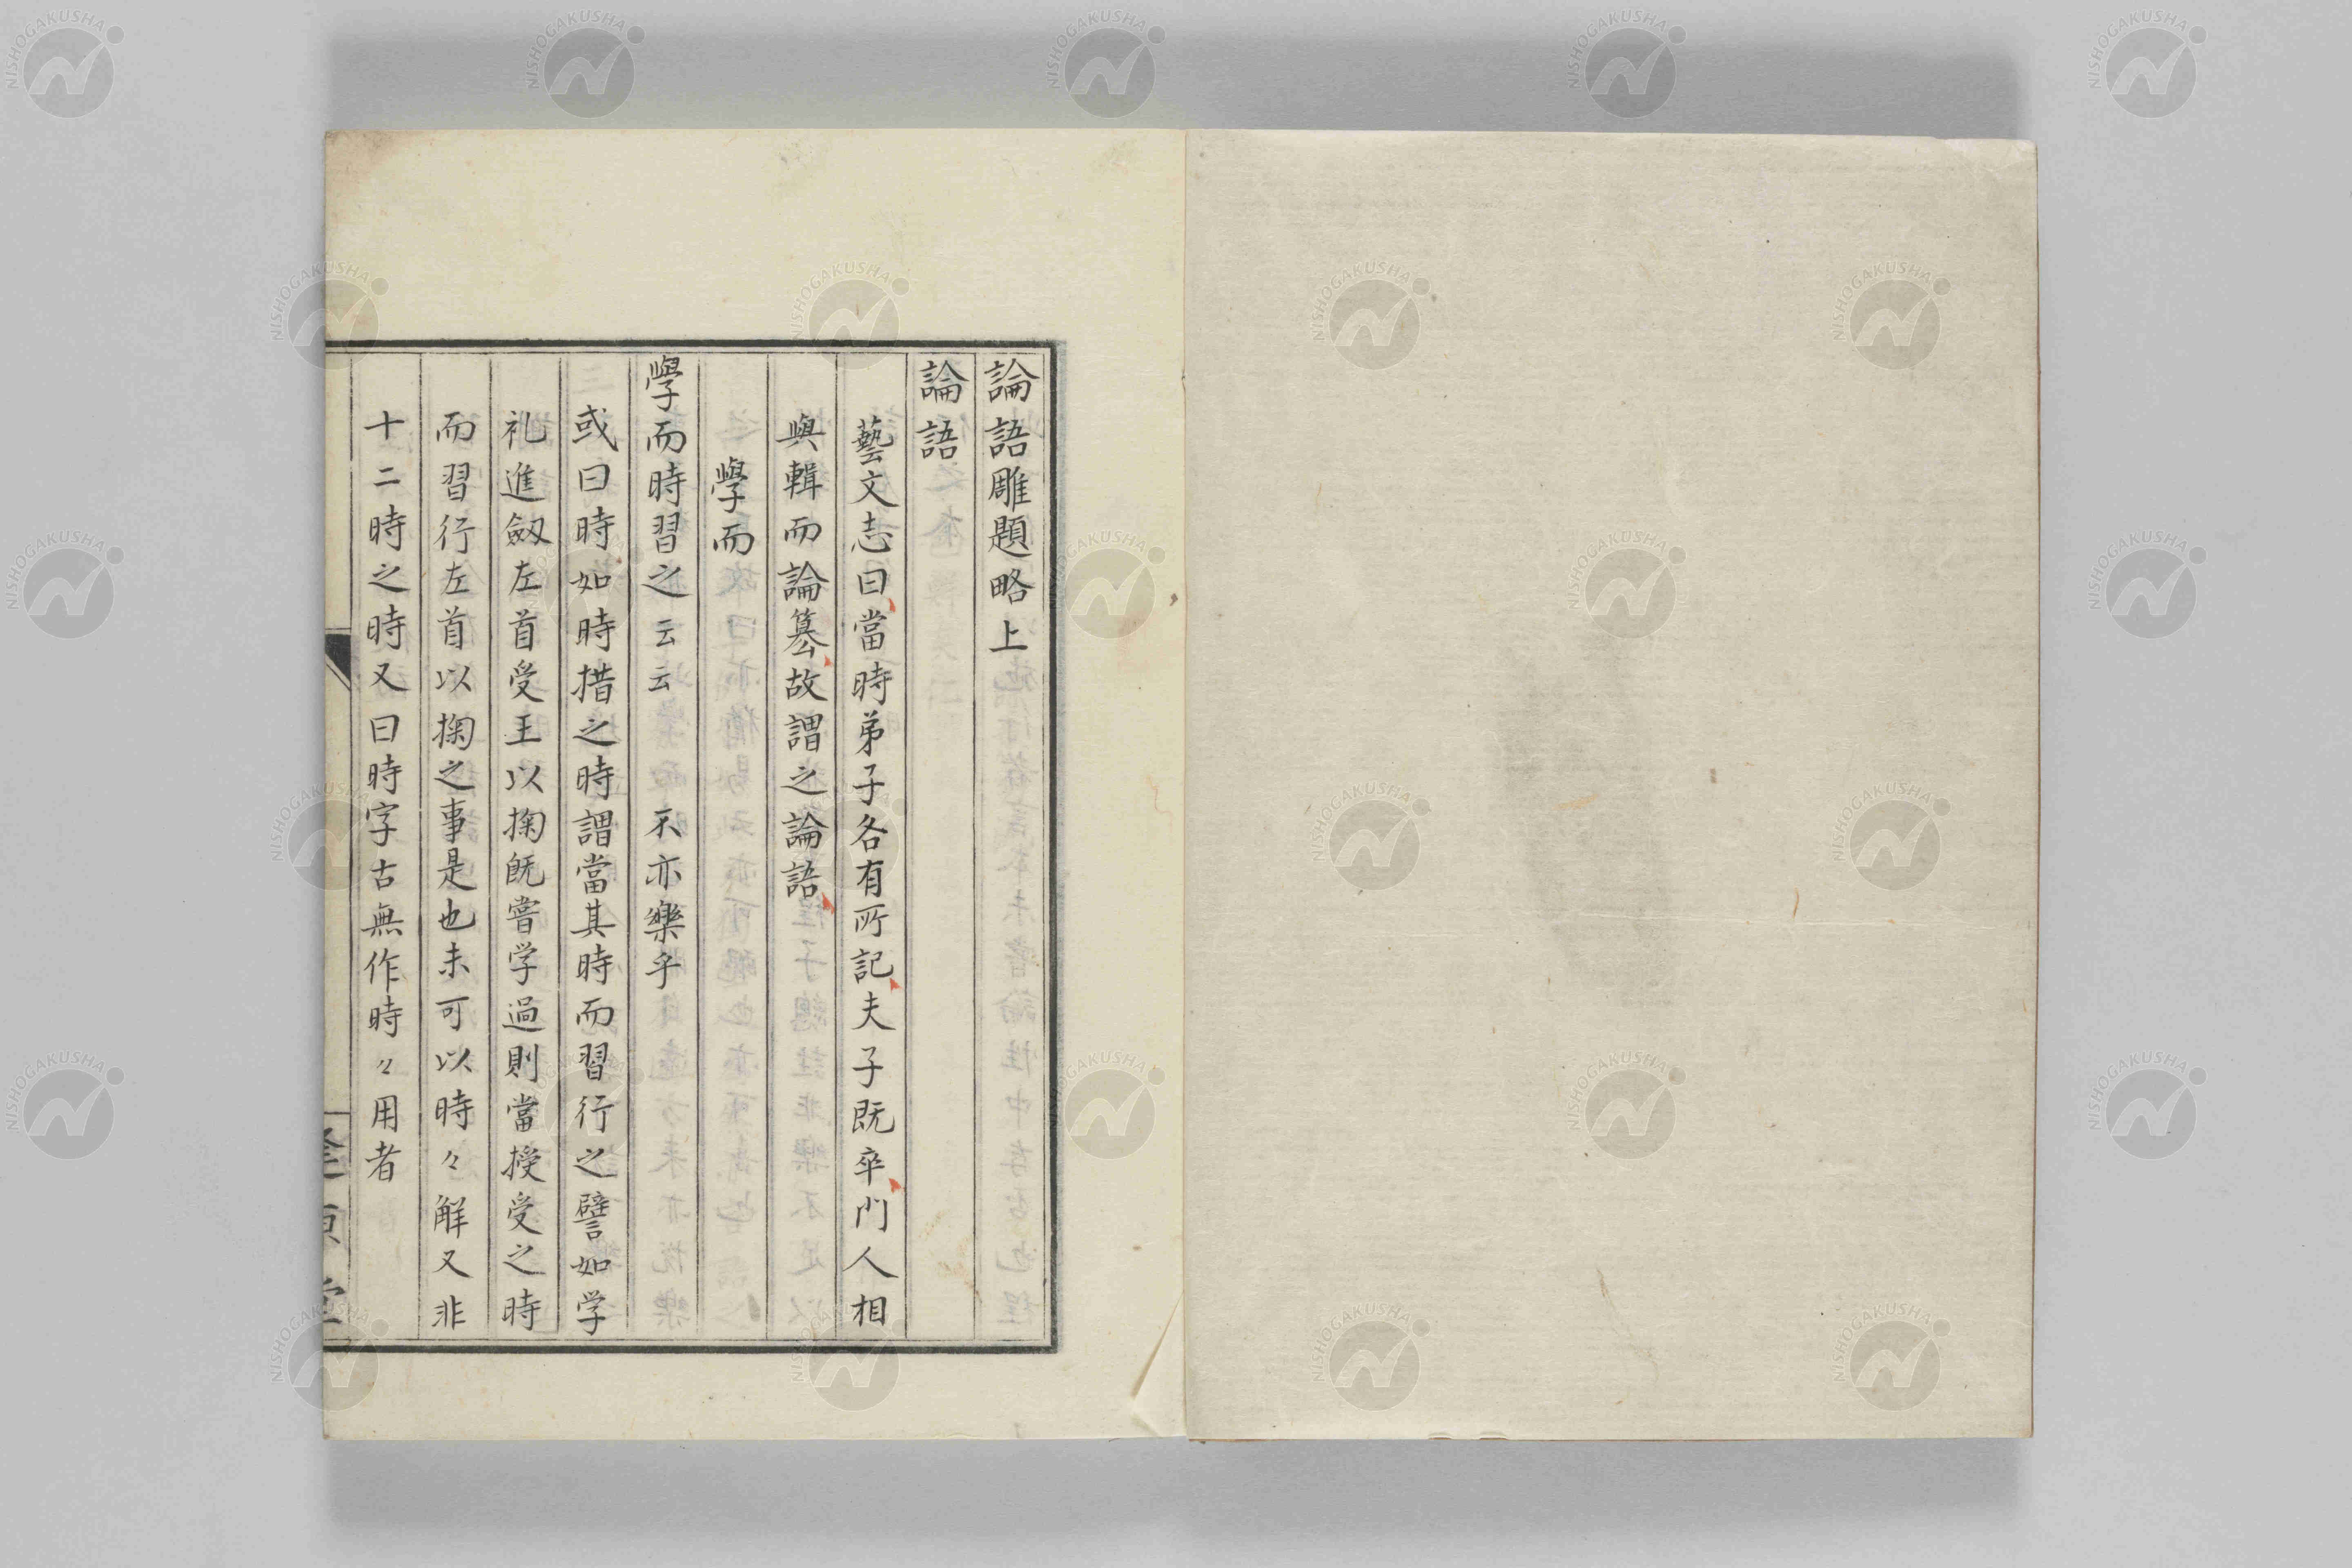 論語雕題略上
論語
藝文志曰當時弟子各有所記夫子既卒門人相
與輯而論篹故謂之論語
學而
學而時習之云云　不亦樂乎
或曰時如時措之時謂當其時而習行之譬如学
礼進劔左首受王以掬既嘗学過則當授受之時
而習行左首以掬之事是也未可以時々解又非
十二時之時又曰時字古無作時々用者
NISHOGAKUSHA